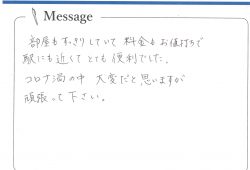 Message
部屋もすっきりしていて 料金もお値打ちで
駅にも近くて とても 便利でした。
コロナ渦の中 大変だと思いますが
頑張って下さい。